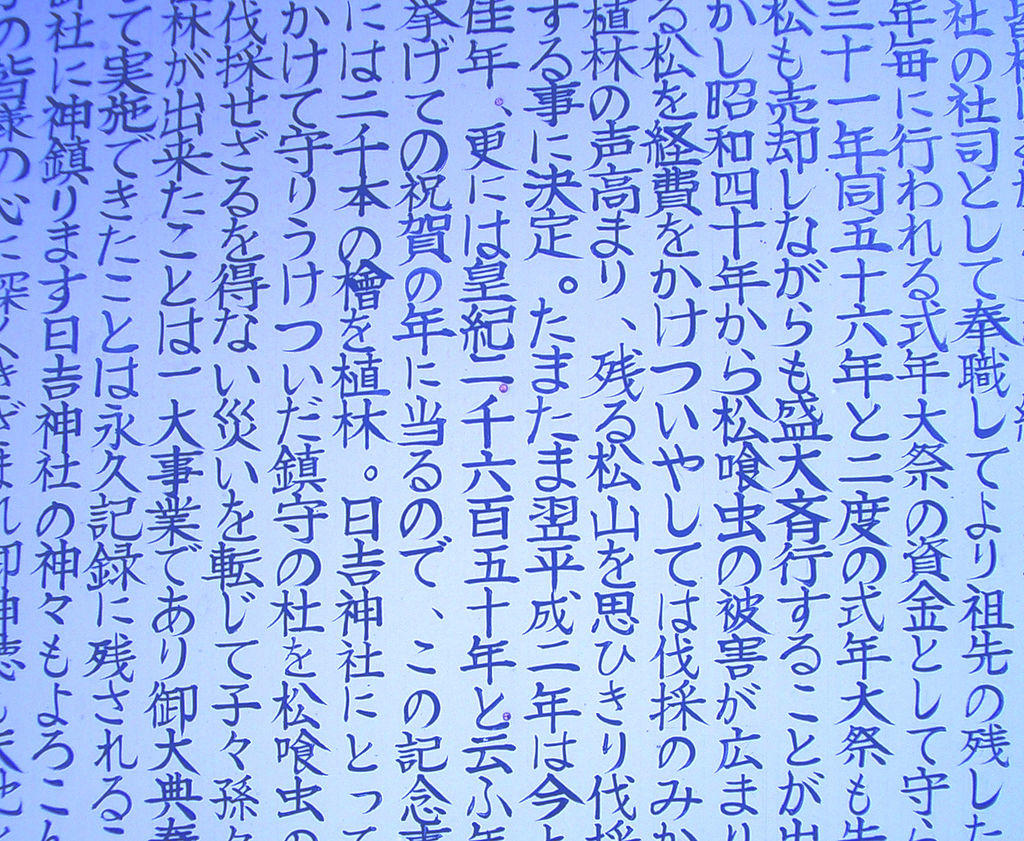 社の社司として奉職してより祖先の残した
年毎に行われる式年大祭の資金として守ら
三十一年同五十六年と二度の式年大祭も先
松も売却しながらも盛大斉行することが出
かし昭和四十年から松喰虫の被害が広まり
る松を経費をかけついやしては伐採のみか
植林の声高まり、残る松山を思ひきり伐採
する事に決定。たまたま翌平成二年は今
佳年、更には皇紀二千六百五十年と云ふ年
挙げての祝賀の年に当るので、この記念事
には二千本の檜を植林。日吉神社にとって
かけて守りうけついだ鎮守の杜を松喰虫の
伐採せざるを得ない災いを転じて子々孫々
林が出来たことは一大事業であり御大典奉
て実施できたことは永久記録に残されるこ
御社に神鎮ります日吉神社の神々もよろこん
の皆様の心に深くきざまれ御神徳